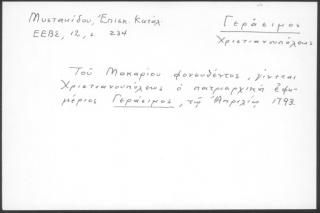 Μυστακίδου, Ἐπισκ. Κατάλ.
ΕΕΒΣ, 12, σ 234
Γεράσιμος
Χριστιανουπόλεως
Τοῦ Μακαρίου φονευθέντος, γίνεται
Χριστιανουπόλεως ὁ πατριαρχικὴ ἐφη-
μέριος Γεράσιμος, τῷ Ἀπριλίῳ 1793.